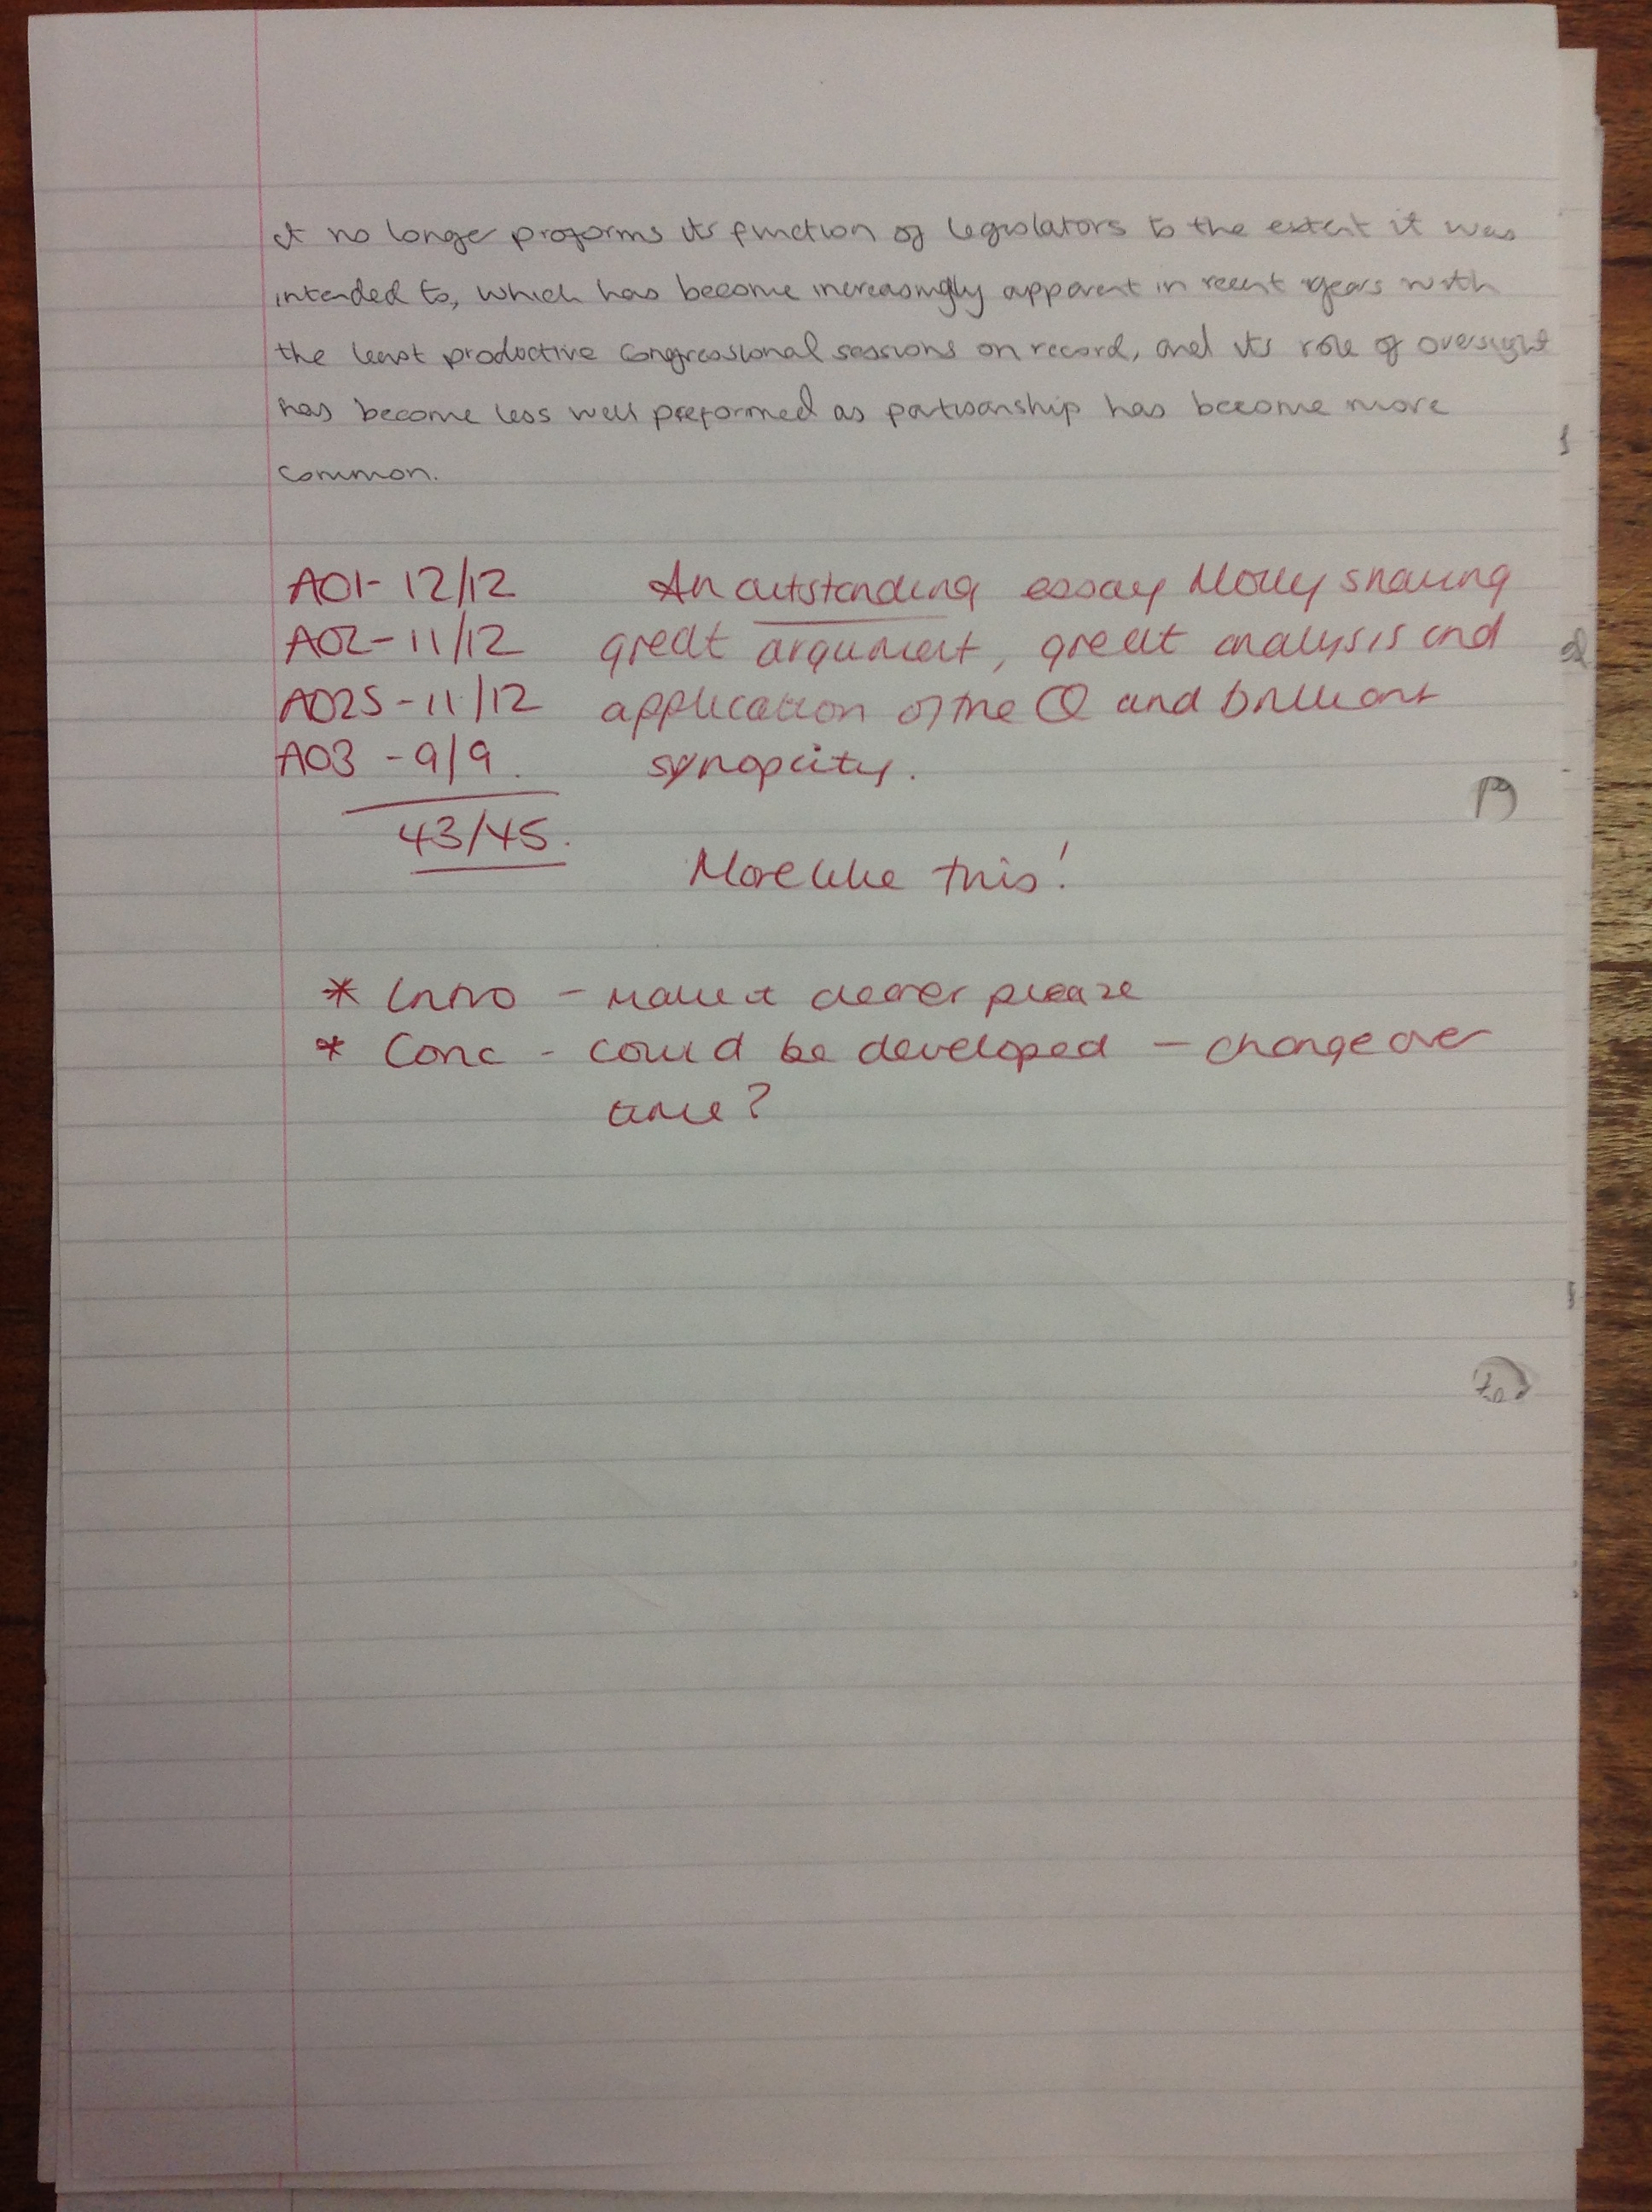 it no longer proforms its function of legislators to the extent it was
intended to, which has become increasingly apparent in recent years with
the least productive congressional sessions on record, and its role of oversight
has become less well preformed as partisanship has become more
common.
AO1- 12/12 An outstanding essay Molly showing
AO2 - 11/12 great argument, great analysis and
AO2S - 11/12 application of the Q and brilliant
AO3 - 9/9. synopcity.
43/45.
More like this!
* Intro - make it clearer please
* Conc - could be developed - change over
time?